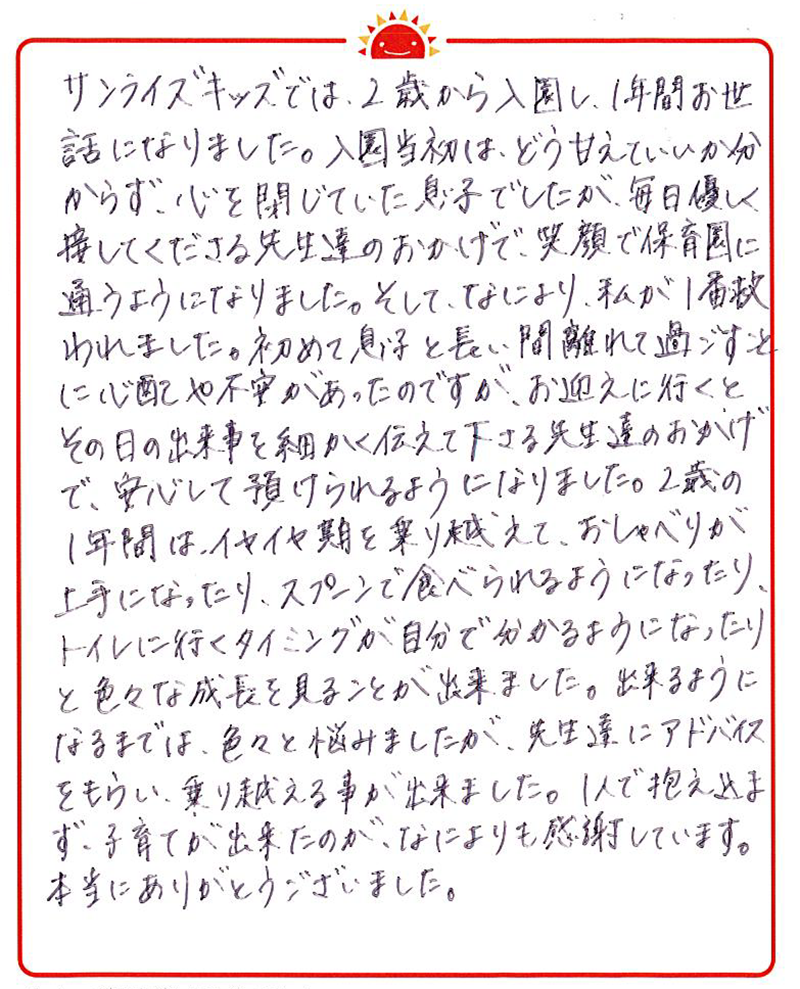 サンライズキッズでは、2歳から入園し、1年間お世
話になりました。入園当初は、どう甘えていいか分
からず、心を閉じていた息子でしたが、毎日優しく
接してくださる先生達のおかげで、笑顔で保育園に
通うようになりました。そして、なにより、私が1番救
われました。初めて息子と長い間離れて過ごすこと
に心配や不安があったのですが、お迎えに行くと
その日の出来事を細かく伝えて下さる先生達のおかげ
で、安心して預けられるようになりました。2歳の
1年間は、イヤイヤ期を乗り越えて、おしゃべりが
上手になったり、スプーンで食べられるようになったり、
トイレに行くタイミングが自分で分かるようになったり
と色々な成長を見ることが出来ました。出来るように
なるまでは、色々と悩みましたが、先生達にアドバイス
をもらい、乗り越える事が出来ました。1人で抱え込ま
ず、子育てが出来たのが、なによりも感謝しています。
本当にありがとうございました。